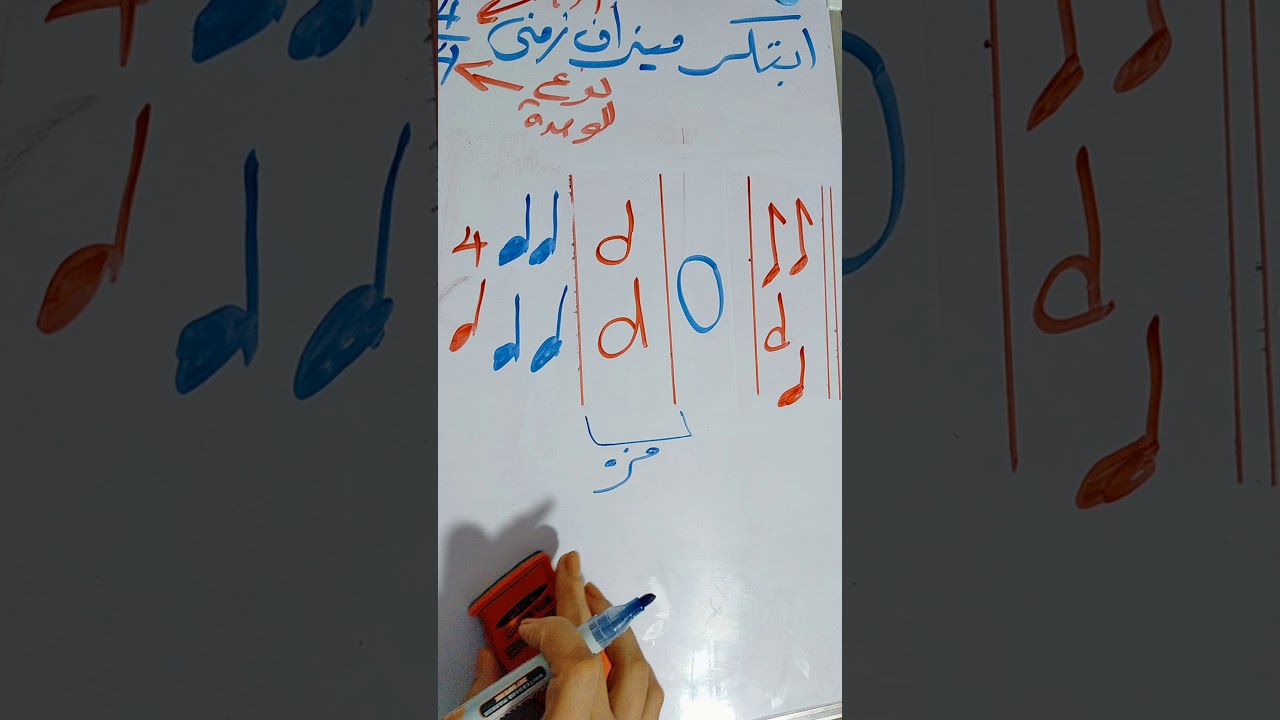 4
ابتكر ميزان زمنى
4
نوع
الوحدة
4
مزة